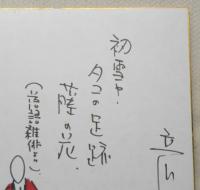 初雪や、
タコの足跡
の花.
(落語雑俳より)